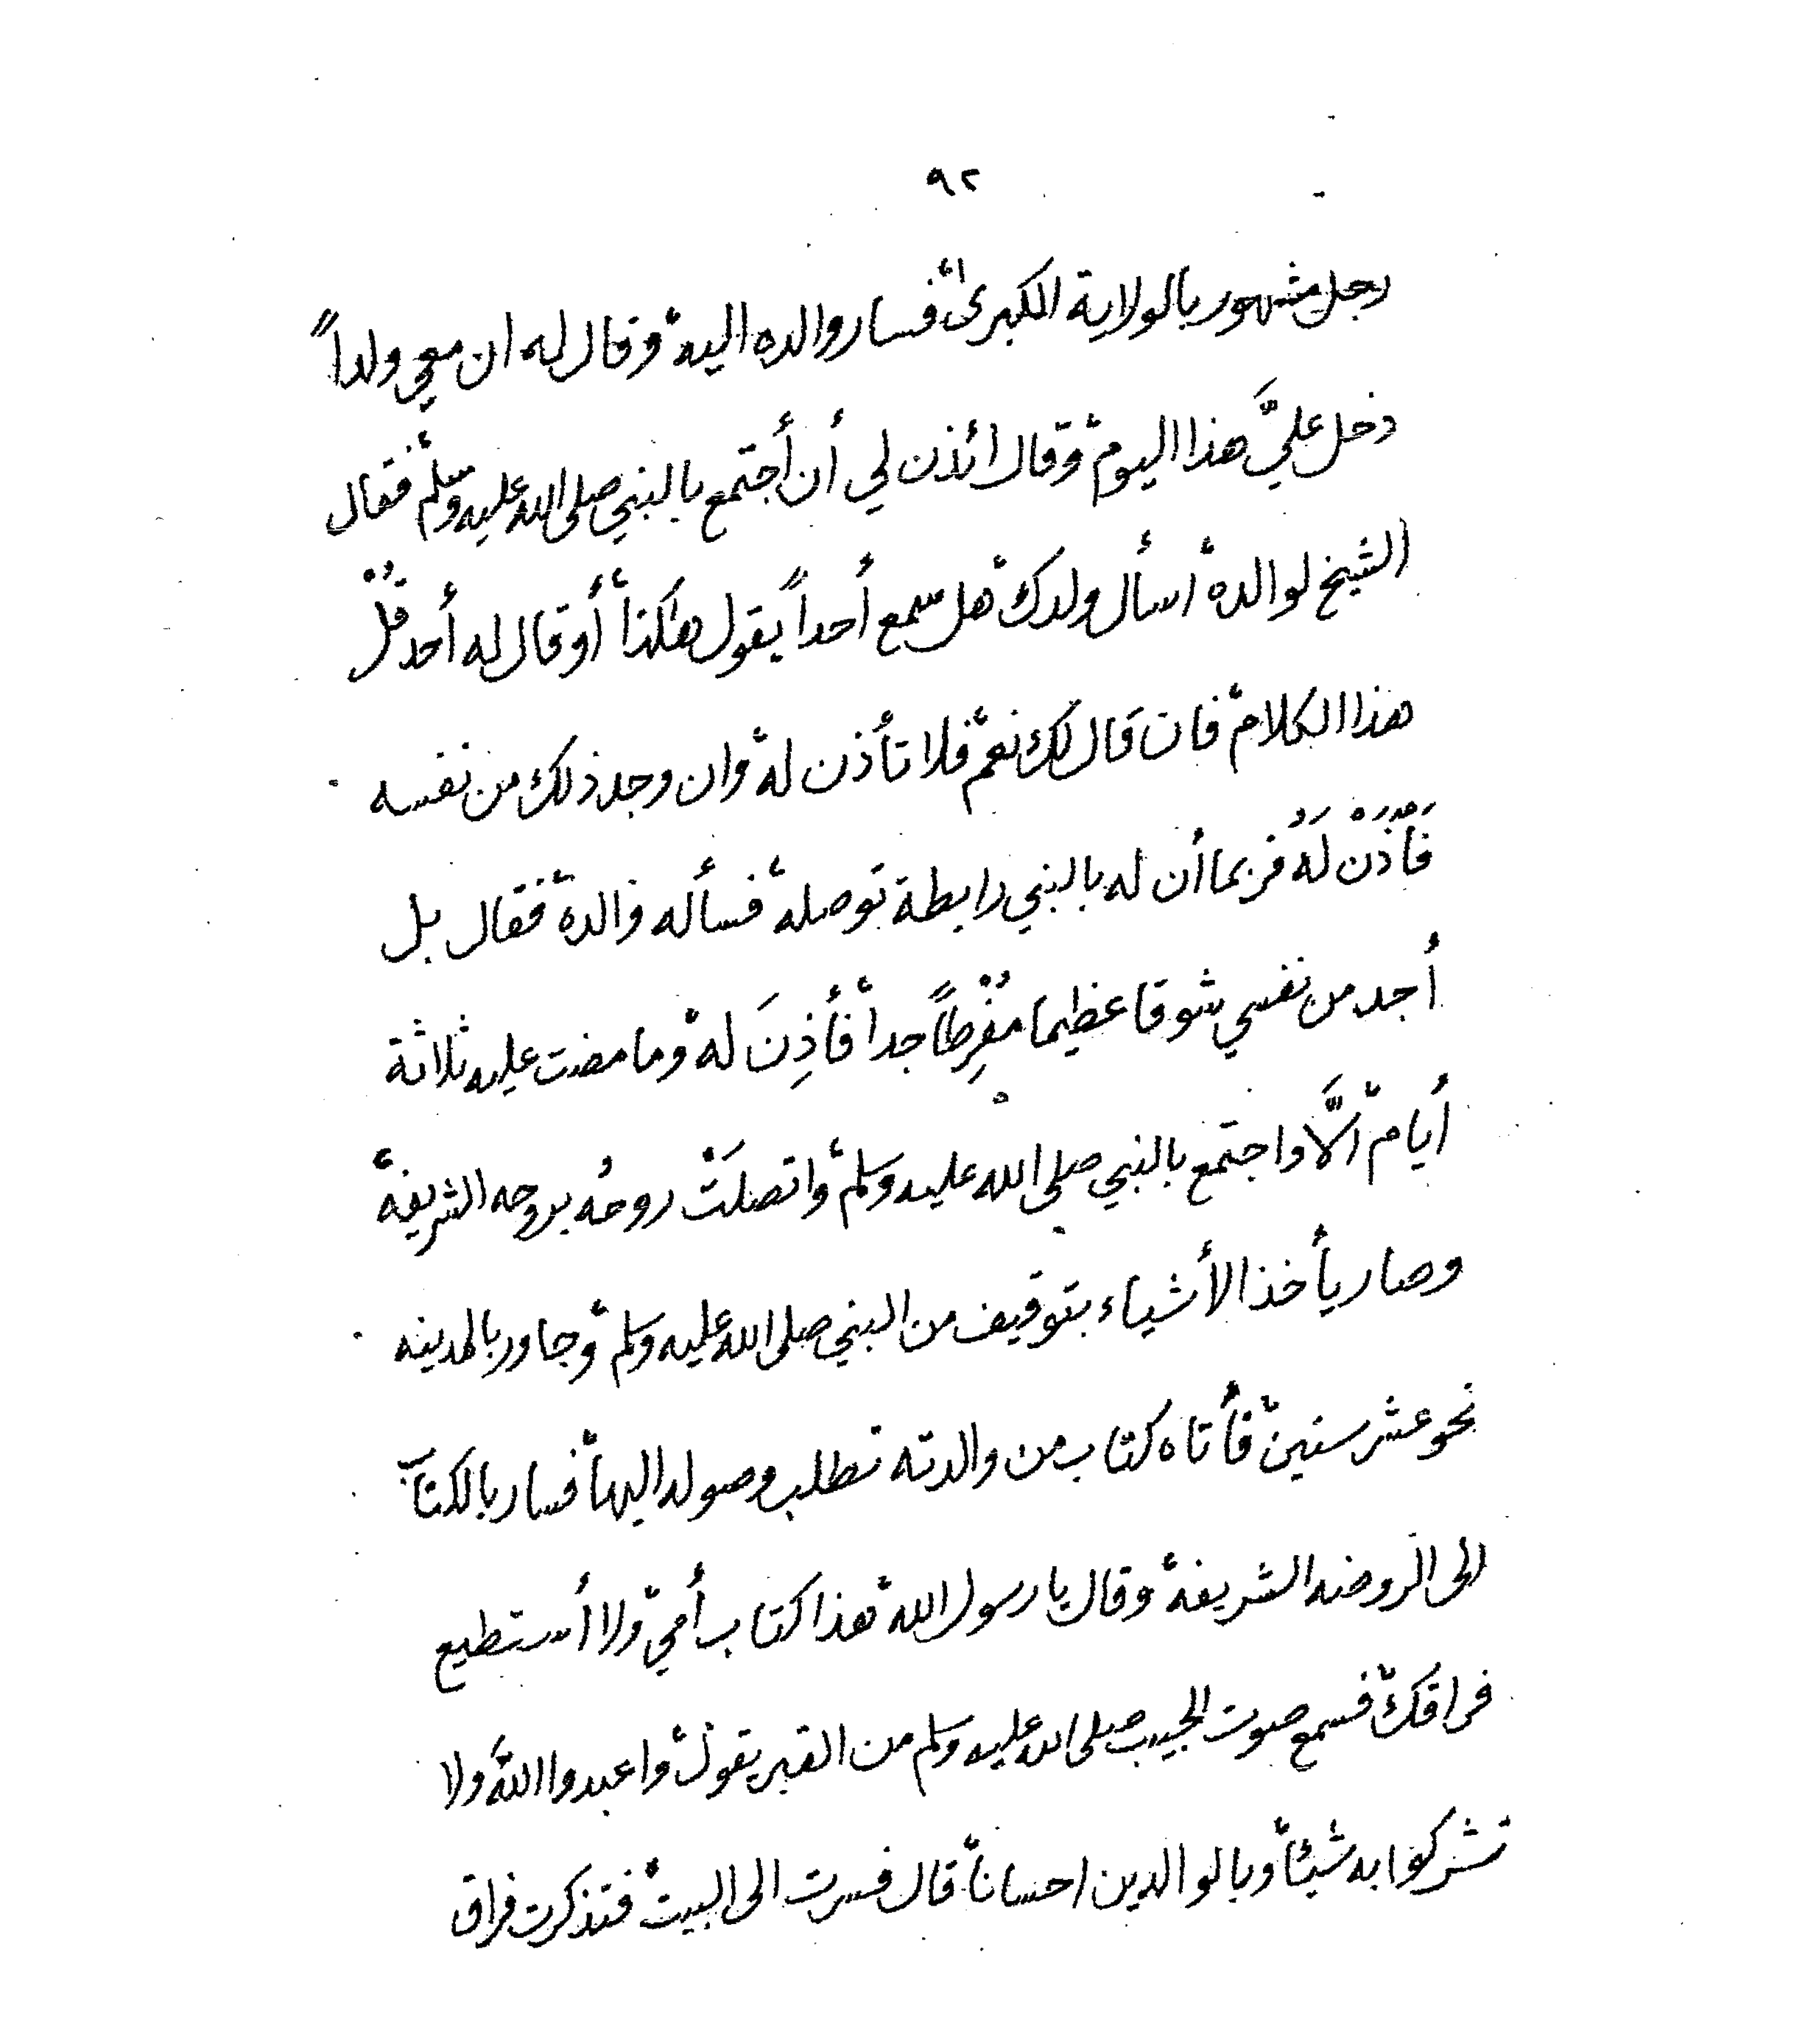 ٩٢
رجل مشهور بالولاية الكبرى، فسار والده اليه، وقال له ان معي ولداً
دخل عليَّ هذا اليوم، وقال ائذن لي أن أجتمع بالنبي صلى الله عليه وسلم، فقال
الشيخ لوالده، اسأل ولدك، هل سمع أحداً يقول هكذا، أو قال له أحد قُلْ
هذا الكلام، فان قال لك نعم، فلا تأذن له، وان وجد ذلك من نفسه
فَأْذَنْ لَهُ، فربما أن له بالنبي رابطة توصله، فسأله والده، فقال بل
أجد من نفسي شوقا عظيما مُفْرِطاً جدا، فأذِنَ له، وما مضت عليه ثلاثة
أيام، الَّا واجتمع بالنبي صلى الله عليه وسلم، واتصلَتْ روحُه بروحه الشريفة،
وصار يأخذ الأشياء بتوقيف من النبي صلى الله عليه وسلم، وجاور بالمدينه
نحو عشر سنين، فأتاه كتاب من والدته تطلب وصوله اليها، فسار بالكتاب
الى الروضه الشريفة، وقال يا رسول الله، هذا كتاب أمي، ولا أستطيع
فراقك، فسمع صوت الحبيب صلى الله عليه وسلم من القبر يقول، واعبدوا اللهَ ولا
تشركوا به شيئاً، وبالوالدين احساناً، قال فسرت الى البيت، فتذكرت فراق